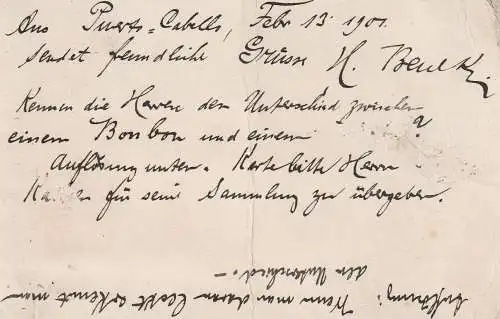 Aus Puerto-Cabello, Febr 13. 1901
sendet freundliche Grüsse H.
Kennen die Herren den Unterschied zwischen
einem Bonbon und einem ?
Auflösung unten. Karte bitte Herrn
für seine Sammlung zu übergeben.
Auflösung: Wenn man daran leckt erkennt man
den Unterschied.-